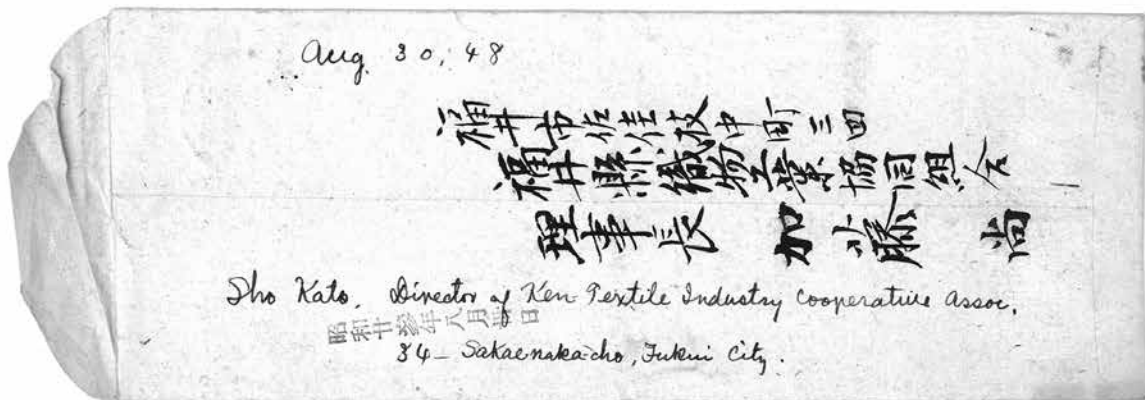 Aug. 30, 48
福井市佐佳枝中町三四
福井縣織物工業協同組合
理事長 加藤 尚
Sho Kato, Director of Ken Textile Industry Cooperative Assoc.
昭和廿参年八月 日
34 - Sakaenaka-cho, Fukui City.